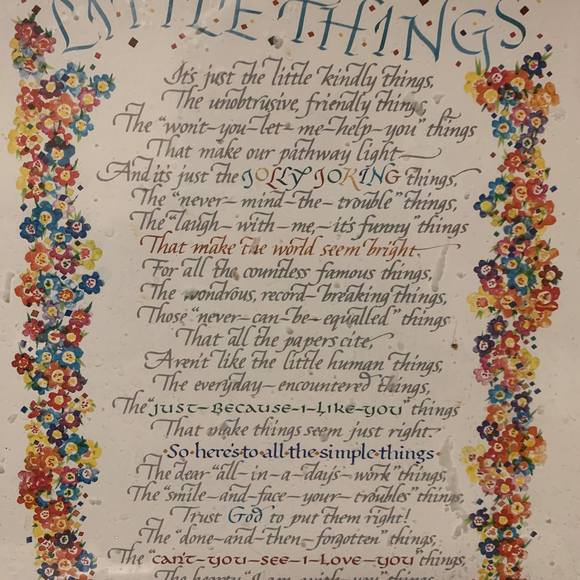 LITTLE THINGS
It's just the little kindly things,
The unobtrusive, friendly things,
The "won't-you-let-me-help-you" things
That make our pathway light—
And it's just the JOLLY JOKING things,
The "never-mind-the-trouble" things,
The "laugh-with-me,-it's funny" things
That make the world seem bright.
For all the countless famous things,
The wondrous, record-breaking things,
Those "never-can-be-equalled" things
That all the papers cite,
Aren't like the little human things,
The everyday-encountered things,
The "just-because-I-like-you" things
That make things seem just right.
So here's to all the simple things
The dear "all-in-a-day's-work" things,
The "smile-and-face-your-troubles" things,
Trust God to put them right!
The "done-and-then-forgotten" things,
The "can't-you-see-I-love-you" things,
The hearty "I am with you" things